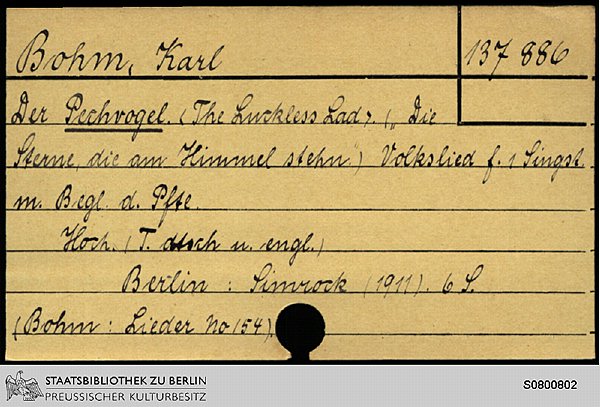 Bohm, Karl
137 886
Der Pechvogel. (The Luckless Lad). („Die
Sterne, die am Himmel stehn") Volkslied f. 1 Singst.
m. Begl. d. Pfte.
Hoch. (T. dtsch u. engl.)
Berlin : Simrock (1911). 6 S.
(Bohm : Lieder No 154)
STAATSBIBLIOTHEK ZU BERLIN
PREUSSISCHER KULTURBESITZ
S0800802